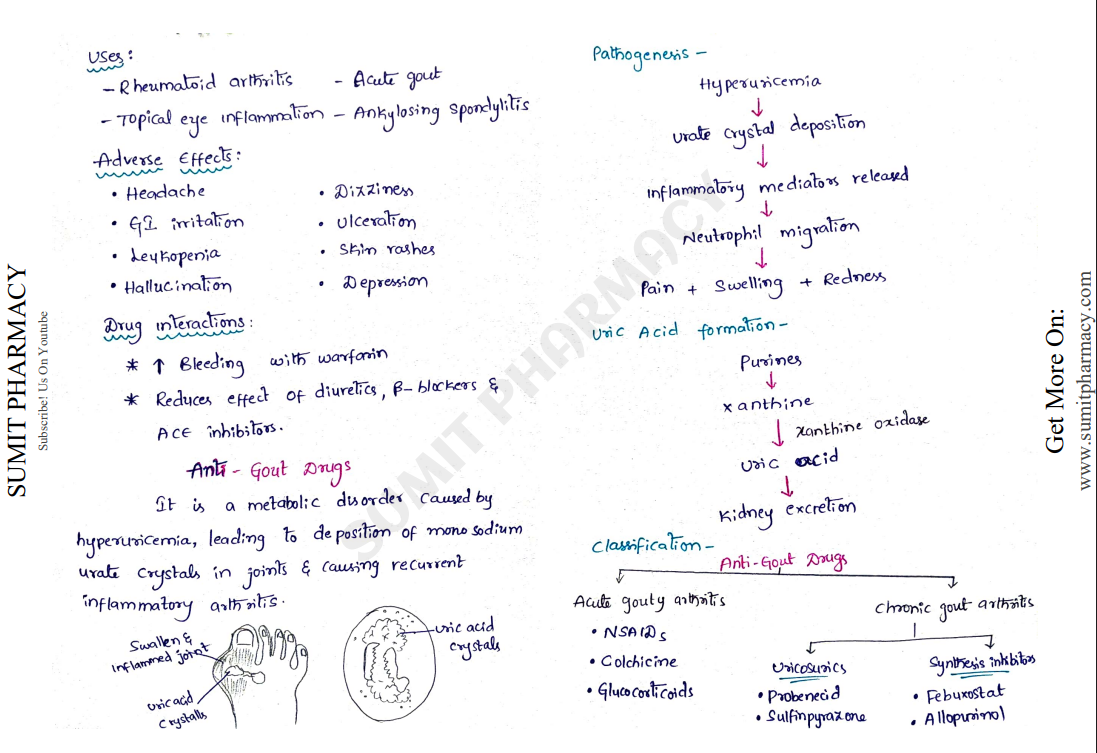 Uses:
- Rheumatoid arthritis - Acute gout
- Topical eye inflammation - Ankylosing spondylitis
Adverse Effects:
• Headache • Dizziness
• GI irritation • Ulceration
• Leukopenia • Skin rashes
• Hallucination • Depression
Drug interactions:
* ↑ Bleeding with warfarin
* Reduces effect of diuretics, β-blockers &
ACE inhibitors.
Anti-Gout Drugs
It is a metabolic disorder caused by
hyperuricemia, leading to deposition of mono sodium
urate crystals in joints & causing recurrent
inflammatory arthritis.
Swallen &
inflammed joint
uric acid
crystalls
uric acid
crystals
Pathogenesis -
Hyperuricemia
↓
urate crystal deposition
↓
Inflammatory mediators released
↓
Neutrophil migration
↓
Pain + Swelling + Redness
Uric Acid formation -
Purines
↓
xanthine
↓ xanthine oxidase
uric acid
↓
Kidney excretion
Classification -
Anti-Gout Drugs
Acute gouty arthritis
• NSAIDs
• Colchicine
• Glucocorticoids
Chronic gout arthritis
Uricosurics
• Probenecid
• Sulfinpyrazone
Synthesis inhibitors
• Febuxostat
• Allopurinol
SUMIT PHARMACY
Subscribe! Us On Youtube
SUMIT PHARMACY
Get More On:
www.sumitpharmacy.com